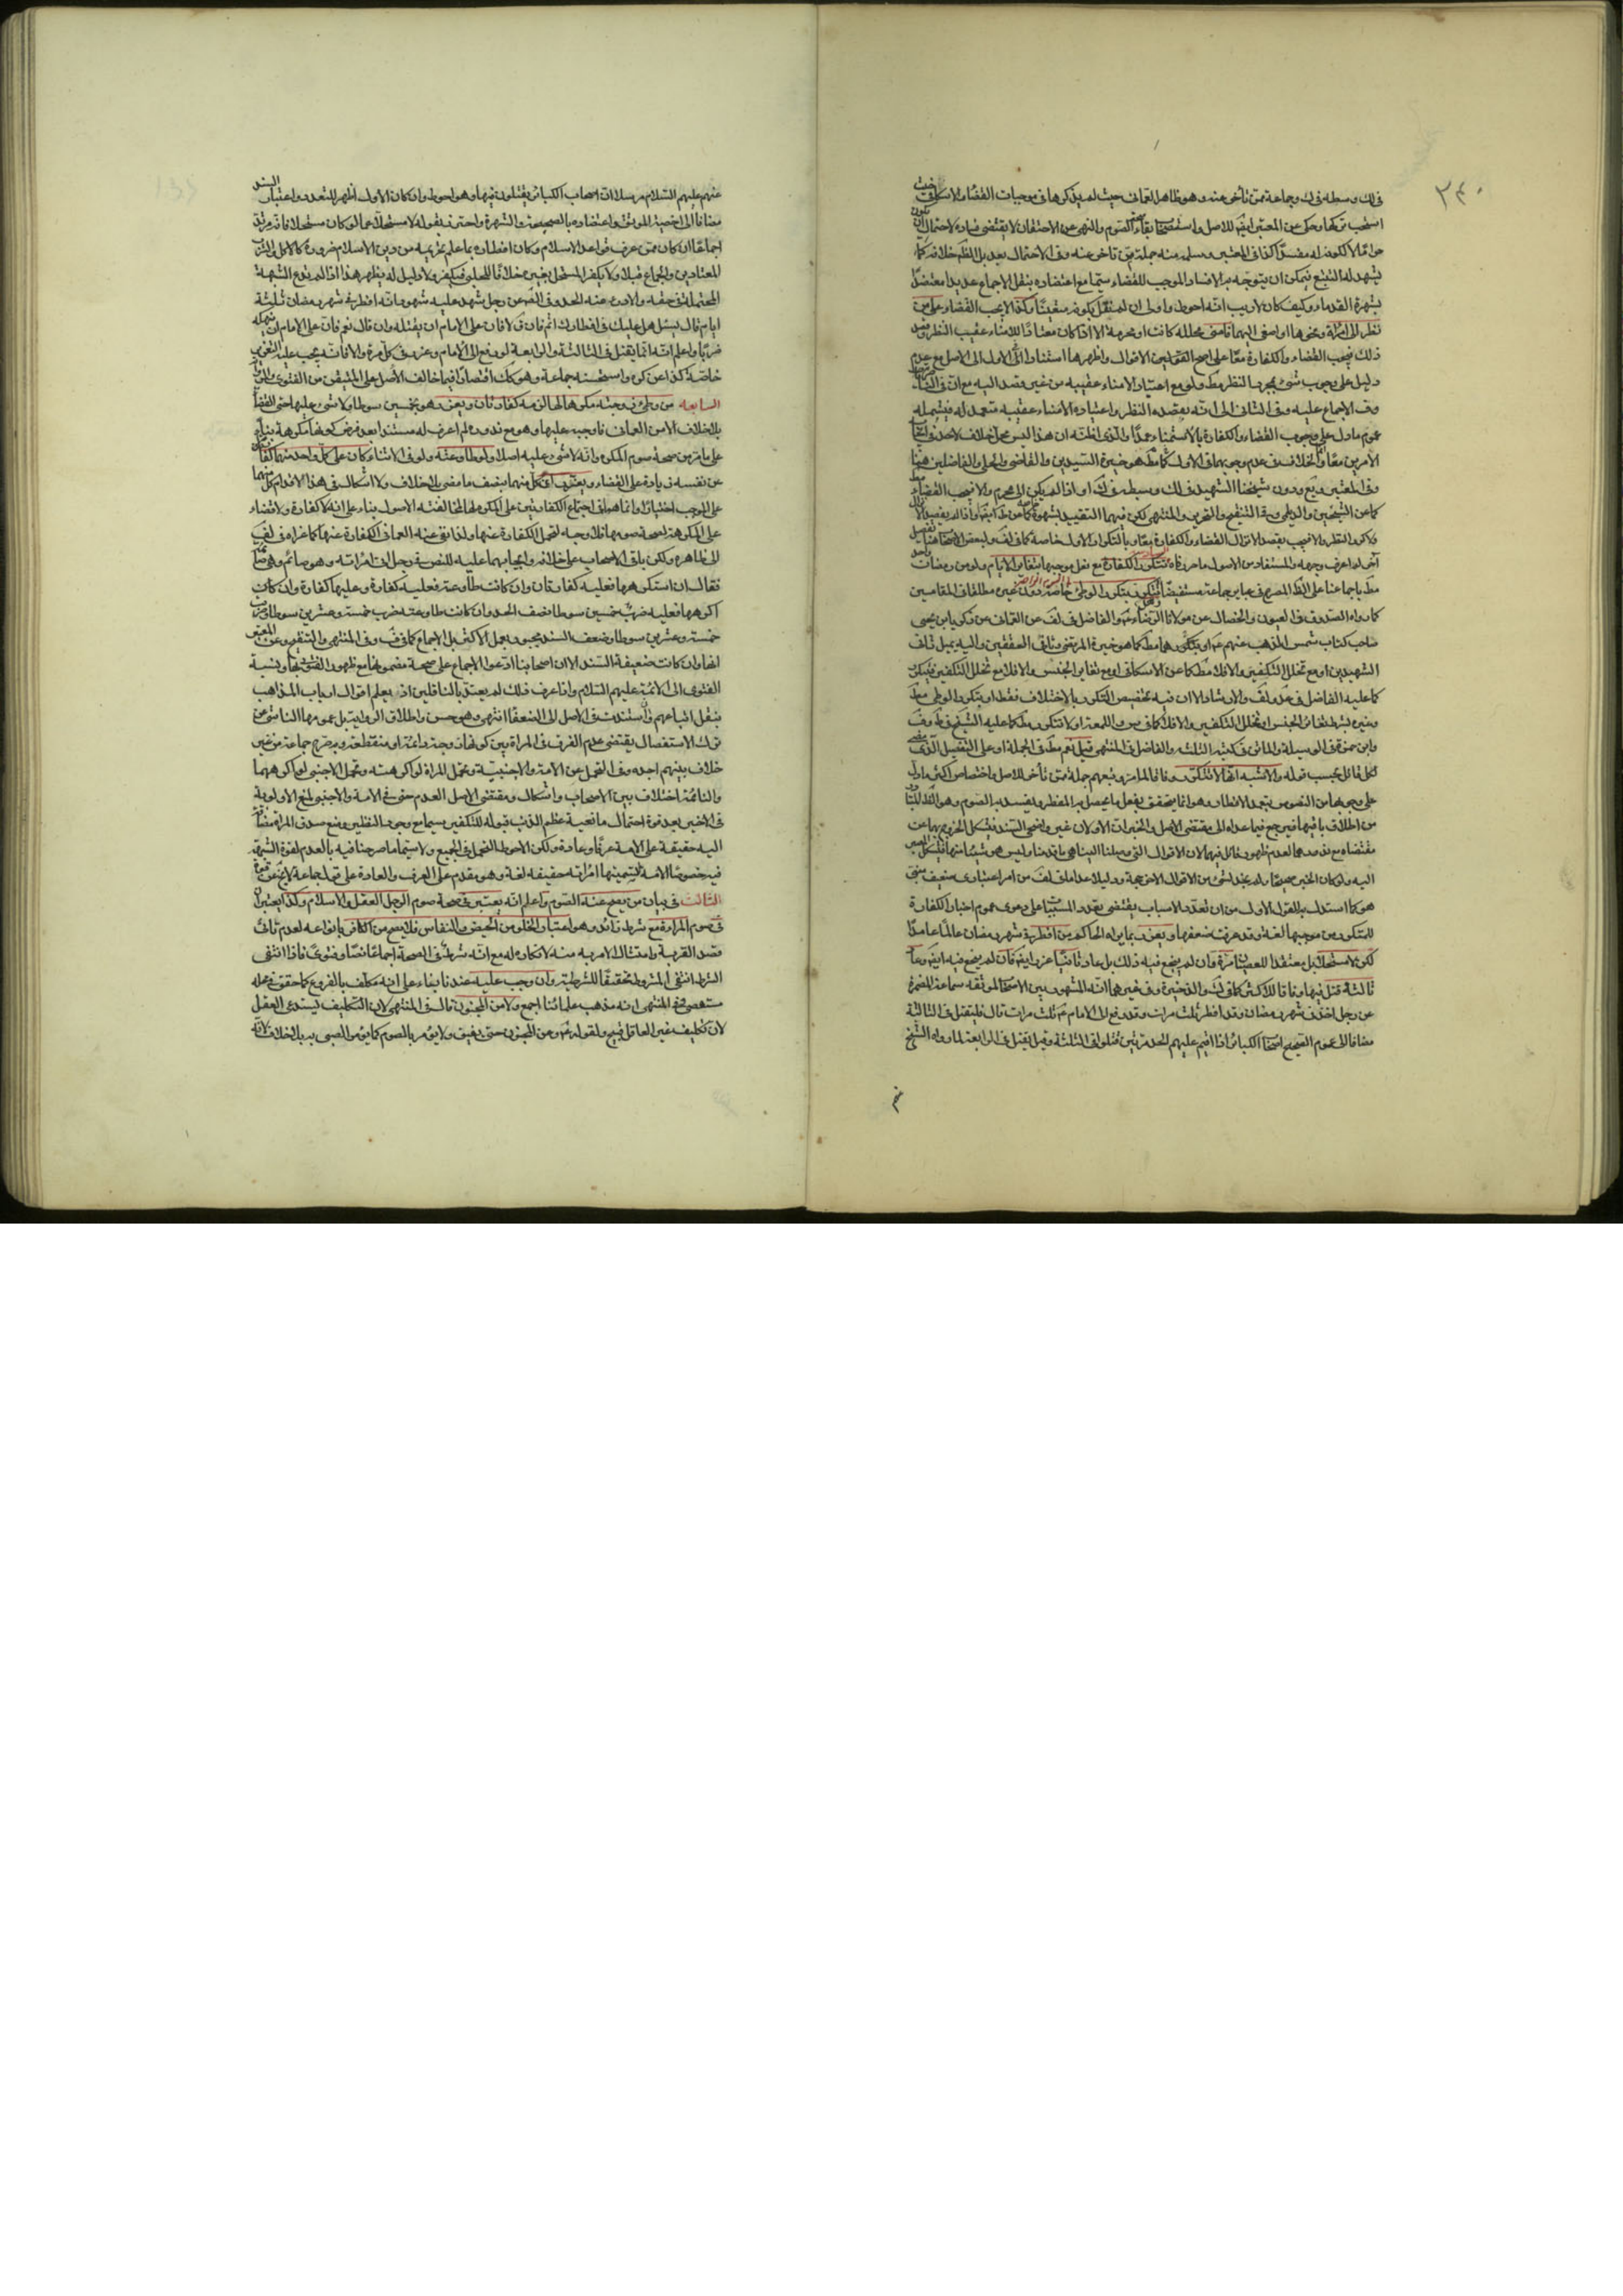 ٢٤٠
في ذلك وسطه في ذلك وجماعة ممن تأخر عنه وهو ظاهر العماني حيث لم يذكرها في موجبات القضاء والاسكافي حيث
استحب تركها وحكى عن المعتبر ايضا للاصل واستصحاب بقاء صحة الصوم والنهي عن الاحتقان لا يقتضي فساده لاحتمال ان يكون
حراما لا لكونه مفسدا كما في المعتبر وسلمه منه جملة ممن تأخر عنه وفي الاحتمال بعد بل الظاهر خلافه كما
يشهد له التتبع فيمكن ان يتوجه به الافساد الموجب للقضاء سيما مع اعتضاده بنقل الاجماع عديدا معتضدا
بشهرة القدماء وكيف كان لا ريب انه احوط واولى ان لم نقل بكونه متعينا وكذا لا يجب القضاء على من
نظر الى امرأة ونحوها او اصغى اليها فامنى محللة كانت او محرمة الا اذا كان معتادا للامناء عقيب النظر وقصد
ذلك فيجب القضاء والكفارة معا على اصح القولين الاقوال واظهرها استنادا في الاول الى الاصل مع عدم
دليل على وجوب شيء بمجرد النظر مط ولو مع اعتياد الامناء عقيبه من غير قصد اليه مع ان في
الاجماع عليه وفي الثاني الى انه بقصده النظر واعتياده الامناء عقيبه متعمد له فيشمله
عموم ما دل على وجوب القضاء والكفارة بالاستمناء عمدا والذي اظنه ان هذا ليس محل خلاف لاحد في ايجاب
الامرين معا والخلاف في عدم وجوبهما في الاول كما هو خيرة السيدين والقاضي والحلي والفاضلين هنا
وفي المعتبر
كما عن الشيخين والديلمي وفي التنقيح والتحرير والمنتهى لكن فيهما التقييد بشهوة
ولا كرر النظر والا فيجب بقصد الانزال القضاء والكفارة معا وبالتكرار الاول خاصة كما في لف ولبعض الاصحاب هنا تفصيل
آخر لم اعرف وجهه والمستفاد من الاصول ما حررناه تتكرر الكفارة مع فعل موجبها بتغاير الايام ولو من رمضان واحد
مط باجماعنا على الظاهر المصرح في عبائر جماعة مستفيضا وهل تتكرر بتكرر الوطي خاصة دون غيره مطلقا في اليوم الواحد
كما رواه الصدوق في العيون والخصال عن مولانا الرضا ع والفاضل في لف عن العماني عن زكريا بن يحيى
صاحب كتاب شمس المذهب عنهم ع او بتكررها مط كما هو خيرة المرتضى وثاني المحققين واليه يميل ثاني
الشهيدين او مع تخلل التكفير والا فلا مط كما عن الاسكافي او مع تغاير الجنس والا فلا مع تخلل التكفير فيتكرر
كما عليه الفاضل في عد ولف والارشاد الا ان فيه تخصيص التكرر بالاختلاف فقط او بتكرر الوطي مط
وغيره بشرط تغاير الجنس او تخلل التكفير والا فلا كما في س واللمعة او لا تتكرر مط كما عليه الشيخ في ط وف
وابن حمزة في الوسيلة والماتن في كتبه الثلثة والفاضل في المنتهى قيل نعم مط في الجملة او على التفصيل الذي مضى
لكل قائل بحسب قوله والاشبه انها لا تتكرر وفاقا للماتن وتبعهم جملة ممن تأخر للاصل واختصاص اكثر ما دل
على وجوبها من النصوص بتعمد الافطار وهو انما يتحقق بفعل ما يحصل به المفطر ويفسد به الصوم وهو الظاهر المتبادر
من اطلاق باقيها فيرجع فيما عداه الى مقتضى الاصل والخبران الاولان غير واضحي السند فيشكل الخروج بهما عن
مقتضاه مع ندورهما لعدم ظهور قائل بهما لان الاقوال التي وصلنا اليها هي ما قدمنا وليس هو شيئا منها فيشكل المصير
اليه ولو كان الخبر صحيحا ولم نجد لشيء من الاقوال الاخر حجة ودليلا عدا ما في لف من امر اعتباري ضعيف مبني
هو كما استدل به للقول الاول من ان تعدد الاسباب يقتضي تعدد المسببات على دعوى عموم اخبار الكفارة
للمتكرر من موجبها لغة وقد عرفت ضعفها ويعزر بما يراه الحاكم من افطر في شهر رمضان عالما عامدا
لكن لا مستحلا بل معتقدا للعصيان مرة فان لم ينجع فيه ذلك بل عاد ثانيا عزر ايضا فان لم ينجع فيه ايضا وعاد
ثالثة قتل فيها وفاقا للاكثر كما في لك والذخيرة وفي غيرهما انه المشهور بين الاصحاب لموثقة سماعة المضمرة
عن رجل اخذ في شهر رمضان وقد افطر ثلث مرات وقد رفع الى الامام ع ثلث مرات قال فليقتل في الثالثة
مضافا الى عموم الصحيح اصحاب الكبائر اذا اقيم عليهم الحد مرتين قتلوا في الثالثة وقيل يقتل في الرابعة لما رواه الشيخ
عنهم عليهم السلام مرسلا ان اصحاب الكبائر يقتلون فيها وهو احوط وان كان الاول اظهر للتعدد واعتبار السند
مضافا الى اخصية الموثق واعتضاده بالصحيح والشهرة واحترز بقوله لا مستحلا عما لو كان مستحلا فانه مرتد
اجماعا ان كان ممن عرف قواعد الاسلام وكان افطاره بما علم تحريمه من دين الاسلام ضرورة كالاكل والشرب
المعتادين والجماع قبلا ولا يكفر المستحل بغيره خلافا للحلبي فيكفر ولا دليل له يظهر هذا اذا لم يدع الشبهة
المحتملة في حقه والا درئ عنه الحد وفي الصحيح عن رجل شهد عليه شهود انه افطر في شهر رمضان ثلثة
ايام قال يسئل هل عليك في افطارك اثم فان قال لا فان على الامام ان يقتله وان قال نعم فان على الامام ان ينهكه
ضربا واعلم انه انما يقتل في الثالثة والرابعة لو رفع الى الامام وعزر في كل مرة والا فانه يجب عليه التعزير
خاصة كذا عن كره واستحسنه جماعة وهو كك اقتصارا فيما خالف الاصل على المتيقن من الفتوى
السابعة من وطئ زوجته مكرها لها لزمه كفارتان ويعزر وهو بخمسين سوطا ولا شيء عليها حتى القضاء
بلا خلاف الا من العماني فاوجبه عليها وهو مع ندوره لم اعرف له مستندا بعد فرض كونها مكرهة بناء
على ما مر من صحة صوم المكره وانه لا شيء عليه اصلا ولو طاوعته ولو في الاثناء كان على كل واحد منهما كفارة
عن نفسه زيادة على القضاء ويعزر اي كل منهما بنصف ما مضى بلا خلاف ولا اشكال في هذا لاقدام كل منهما
على الموجب اختيارا وانما هو في اجتماع الكفارتين على المكره لها لمخالفته الاصول بناء على انه لا كفارة ولا قضاء
على المكرهة لصحة صومها فلا وجه لتحمل الكفارة عنها ولذا نفى عنه العماني الكفارة عنها كما عزاه في لف
الى ظاهره ولكن باقي الاصحاب على خلافه وايجابهما عليه للنص في رجل اتى امرأته وهو صائم وهي صائمة
فقال ان استكرهها فعليه كفارتان وان كانت طاوعته فعليه كفارة وعليها كفارة وان كان
اكرهها فعليه ضرب خمسين سوطا نصف الحد وان كانت طاوعته ضرب خمسة وعشرين سوطا وضربت
خمسة وعشرين سوطا وضعف السند مجبور بعمل الاكثر بل الاجماع كما في ف وفي المنتهى والتنقيح وعن المعتبر
انها وان كانت ضعيفة السند الا ان اصحابنا ادعوا الاجماع على صحة مضمونها مع ظهور القول بها ونسبة
الفتوى الى الائمة عليهم السلام واذا عرف ذلك لم يعتد بالناقلين اذ يعلم اقوال ارباب المذاهب
بنقل اتباعهم وان استندت في الاصل الى الضعفاء انتهى وهو حسن واطلاق الرواية بل عمومها الناشئ عن
ترك الاستفصال يقتضي عدم الفرق في المرأة بين كونها زوجة دائمة او منقطعة وبه صرح جماعة من غير
خلاف بينهم اجده وفي التحمل عن الامة والاجنبية وتحمل المرأة لو اكرهته وتحمل الاجنبي لو اكرههما
والنائمة اختلاف بين الاصحاب واشكال ومقتضى الاصل العدم حتى في الامة والاجنبي لمنع الاولوية
في الاخير بعد قوة احتمال مانعية عظم الذنب قبوله للتكفير سيما مع وجود النظير ومنع صدق المرأة مضافا
اليه حقيقة على الامة عرفا وعادة ولكن الاحوط التحمل في الجميع ولا سيما ما صرحنا فيه بالعدم لقوة الشبهة
فيه خصوصا الامة لتسميتها امرأته حقيقة لغة وهو مقدم على العرف والعادة على قول جماعة لا يخ عن قوة
الثالث في بيان من يصح عنه الصوم واعلم انه يعتبر في صحة صوم الرجل العقل والاسلام وكذا يعتبران
في صوم المرأة مع شرط زائد وهو اعتبار الخلو من الحيض والنفاس فلا يصح من الكافر بانواعه لعدم تأتي
قصد القربة وامتثال الامر به منه لانكاره له مع انه شرط في الصحة اجماعا نصا وفتوى فاذا انتفى
الشرط انتفى المشروط تحقيقا للشرطية وان وجب عليه عندنا بناء على انه مكلف بالفروع كما حقق في محله
مستقصى في المنتهى انه مذهب علمائنا اجمع ولا من المجنون قال في المنتهى لان التكليف يستدعي العقل
لان تكليف غير العاقل قبيح ولقوله ع وعن المجنون حتى يفيق ولا يؤمر بالصوم كما يؤمر الصبي به بلا خلاف لانه